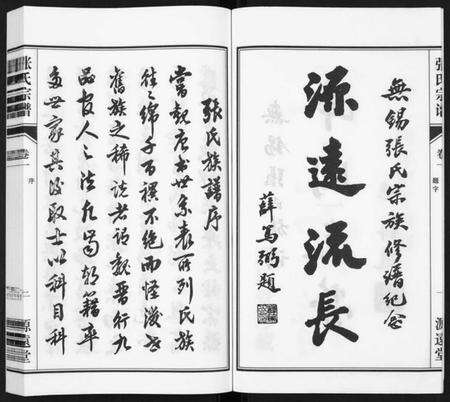 張氏宗譜
卷一
題字
源遠堂
無錫張氏宗族修譜紀念
源遠流長
薛篤弼題
張氏族譜序
嘗觀唐書世系表所列氏族
往往綿子百禩不絕而怪後世
舊族之稀說者謂魏晉行九
品官人之法凡筮朝籍率
多世家其後取士以科目科
张氏宗谱
卷一
序
二
源遠堂